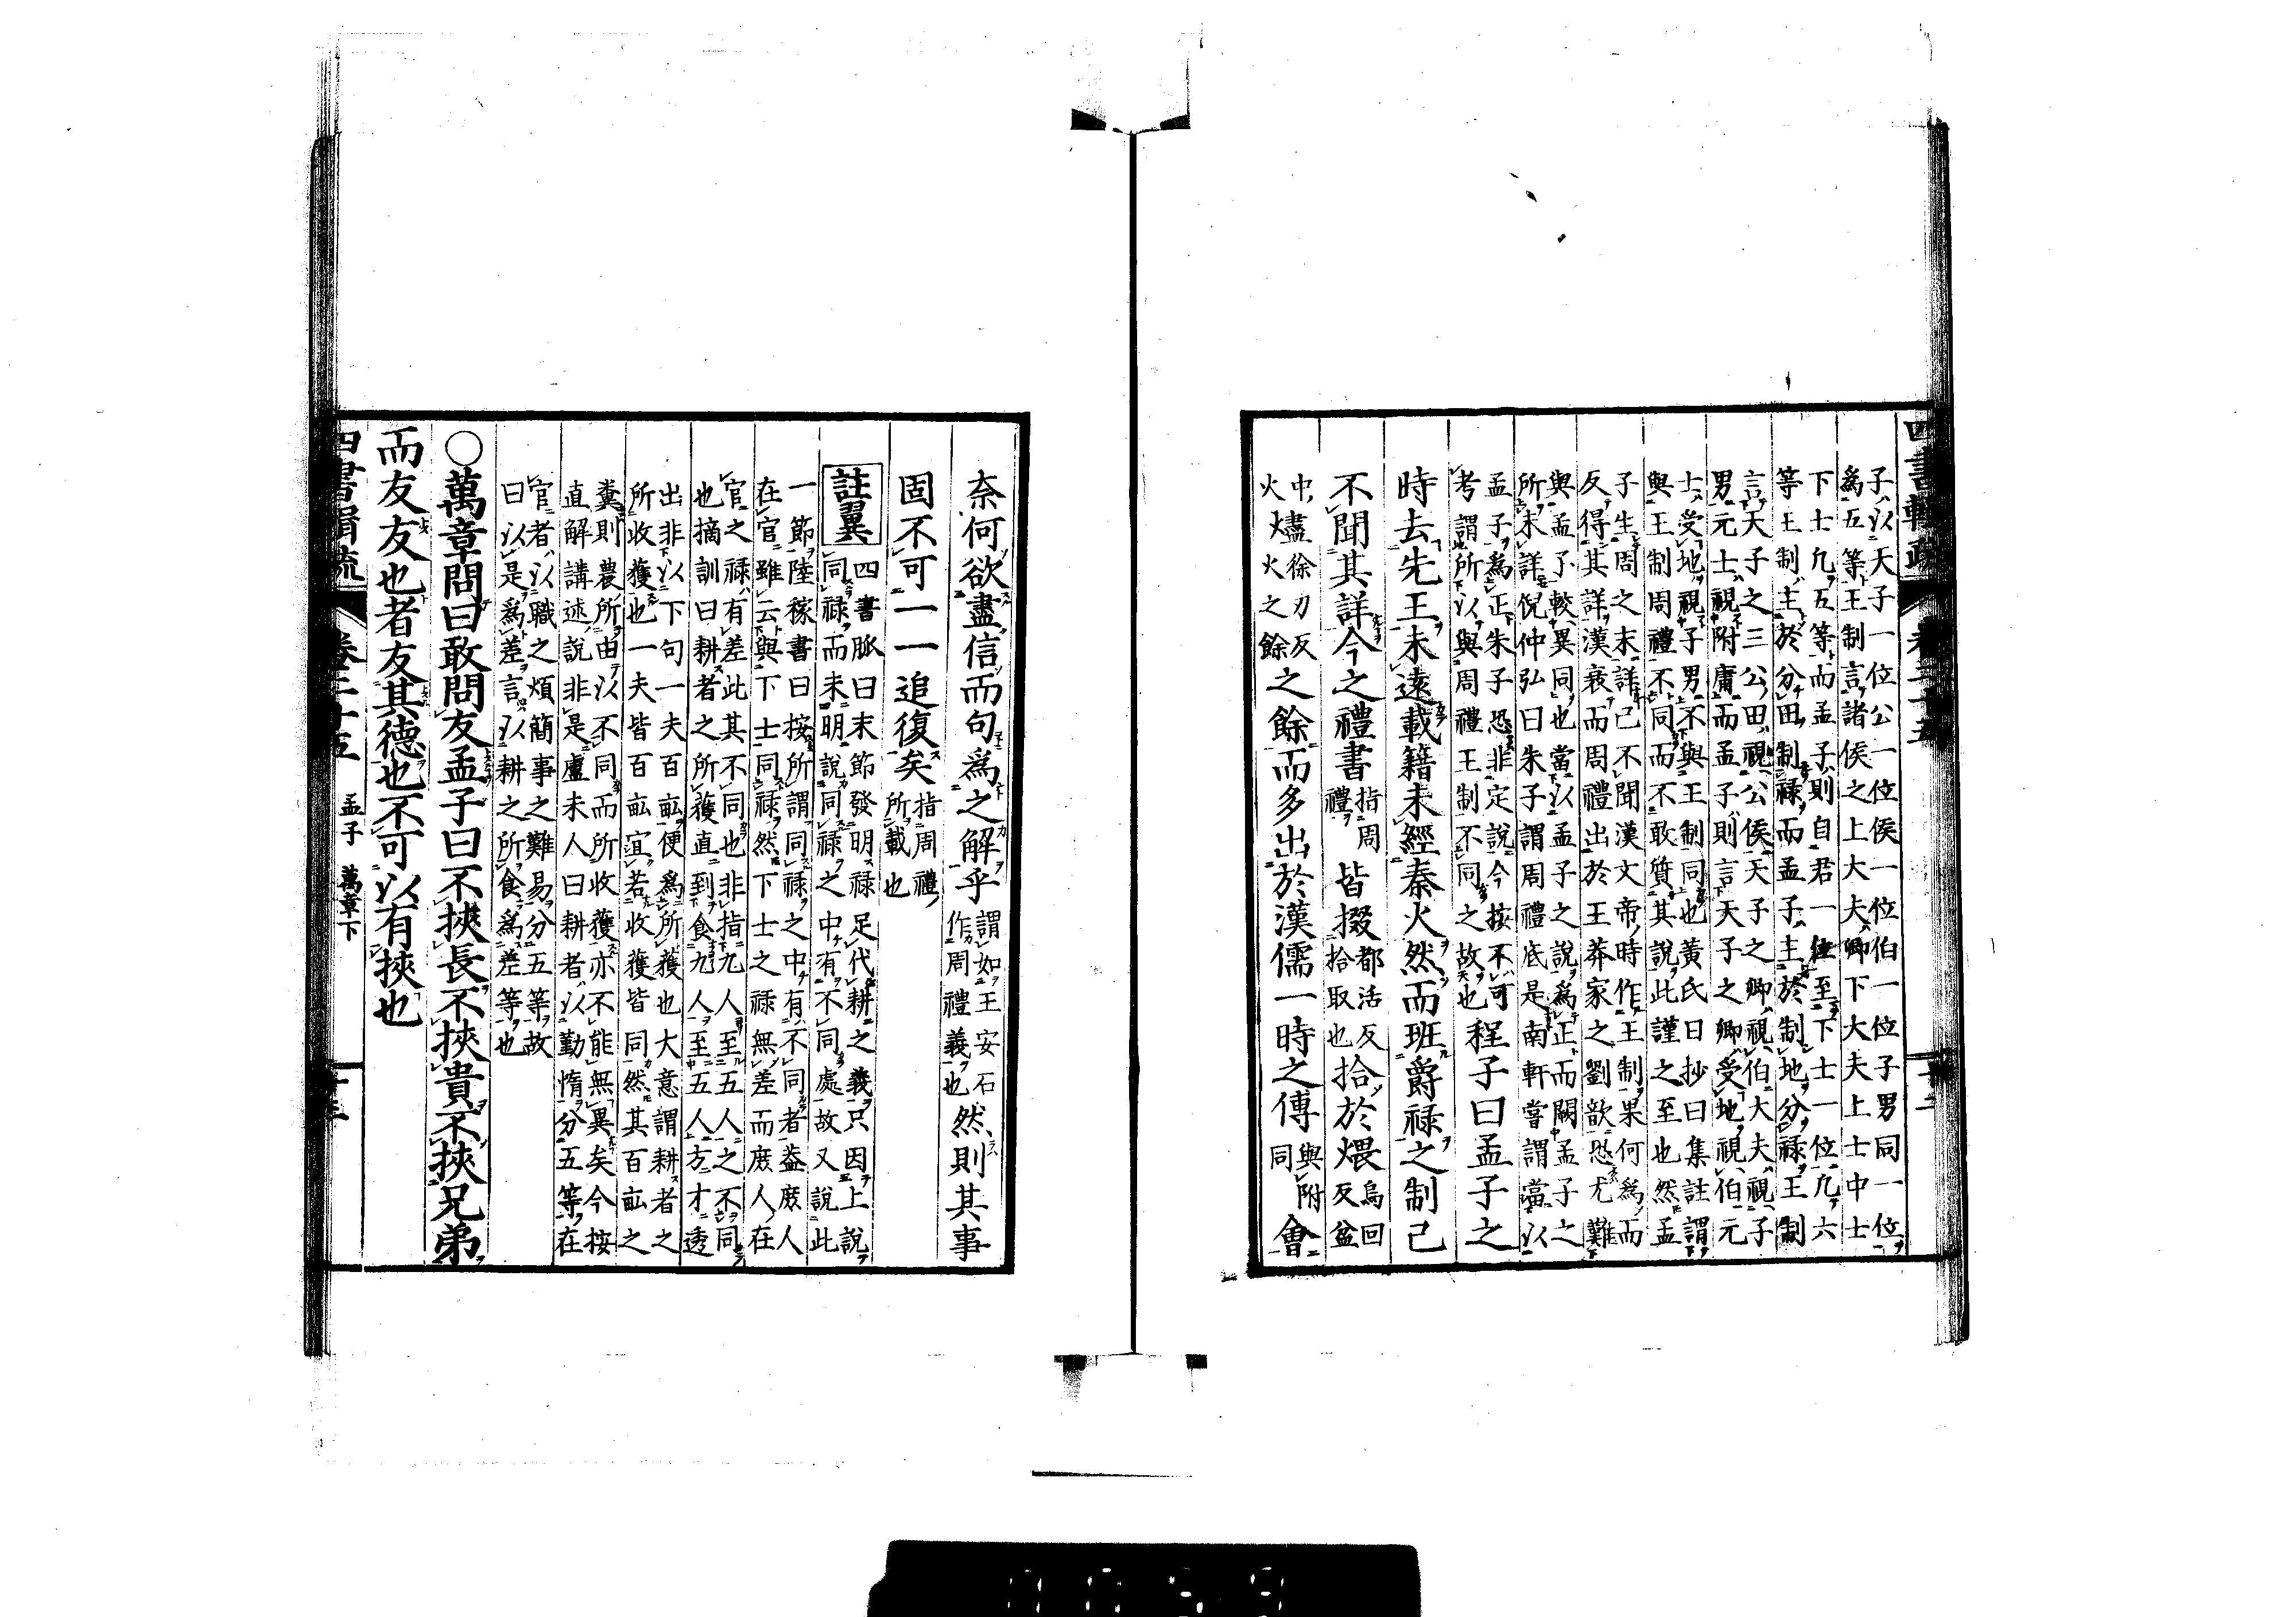 子以天子一位公一位侯一位伯一位子男同一位
為五等王制言諸侯之上大夫卿下大夫上士中士
下士凡五等而孟子則自君一位至下士一位凡六
等王制主於分田制祿而孟子主於制地分祿王制
言天子之三公田視公侯天子之卿視伯大夫視子
男元士視附庸而孟子則言天子之卿受地視伯元
士受地視子男不與王制同也黃氏日抄曰集註謂
與王制周禮不同而不敢質其說此謹之至也然孟
子生周之末詳已不聞漢文帝時作王制果何為而
反得其詳漢衰而周禮出於王莽家之劉歆恐尤難
與孟子較異同也當以孟子之說為正而闕孟子之
所未詳倪仲弘曰朱子謂周禮底是南軒嘗謂當以
孟子為正朱子恐非定說今按不可
考謂所以與周禮王制不同之故也程子曰孟子之
時去先王未遠載籍未經秦火然而班爵祿之制已
不聞其詳今之禮書指周禮皆掇都活反拾取也拾於煨烏回反盆
中燼徐刃反火火之餘之餘而多出於漢儒一時之傅與附同會
奈何欲盡信而句為之解乎謂如王安石作周禮義也然則其事
固不可一一追復矣指周禮所載也
註翼四書脈曰末節發明祿足代耕之義只因上說
同祿而未明說同祿之中有不同處故又說此
一節陸稼書曰按所謂同祿之中有不同者蓋庶人
在官雖云與下士同祿然下士之祿無差而庶人在
官之祿有差此其不同也非指九人至五人之不同
也摘訓曰耕者之所獲直到食九人至五人方才透
出非以下句一夫百畝便為所獲也大意謂耕者之
所收獲也一夫皆百畝宜若收獲皆同然其百畝之
糞則農所由以不同而所收獲亦不能無異矣今按
直解講述說非是盧未人曰耕者以勤惰分五等在
官者以職之煩簡事之難易分五等故
曰以是為差言以耕之所食為差等也
○萬章問曰敢問友孟子曰不挾長不挾貴不挾兄弟
而友友也者友其德也不可以有挾也
孟子 萬章下